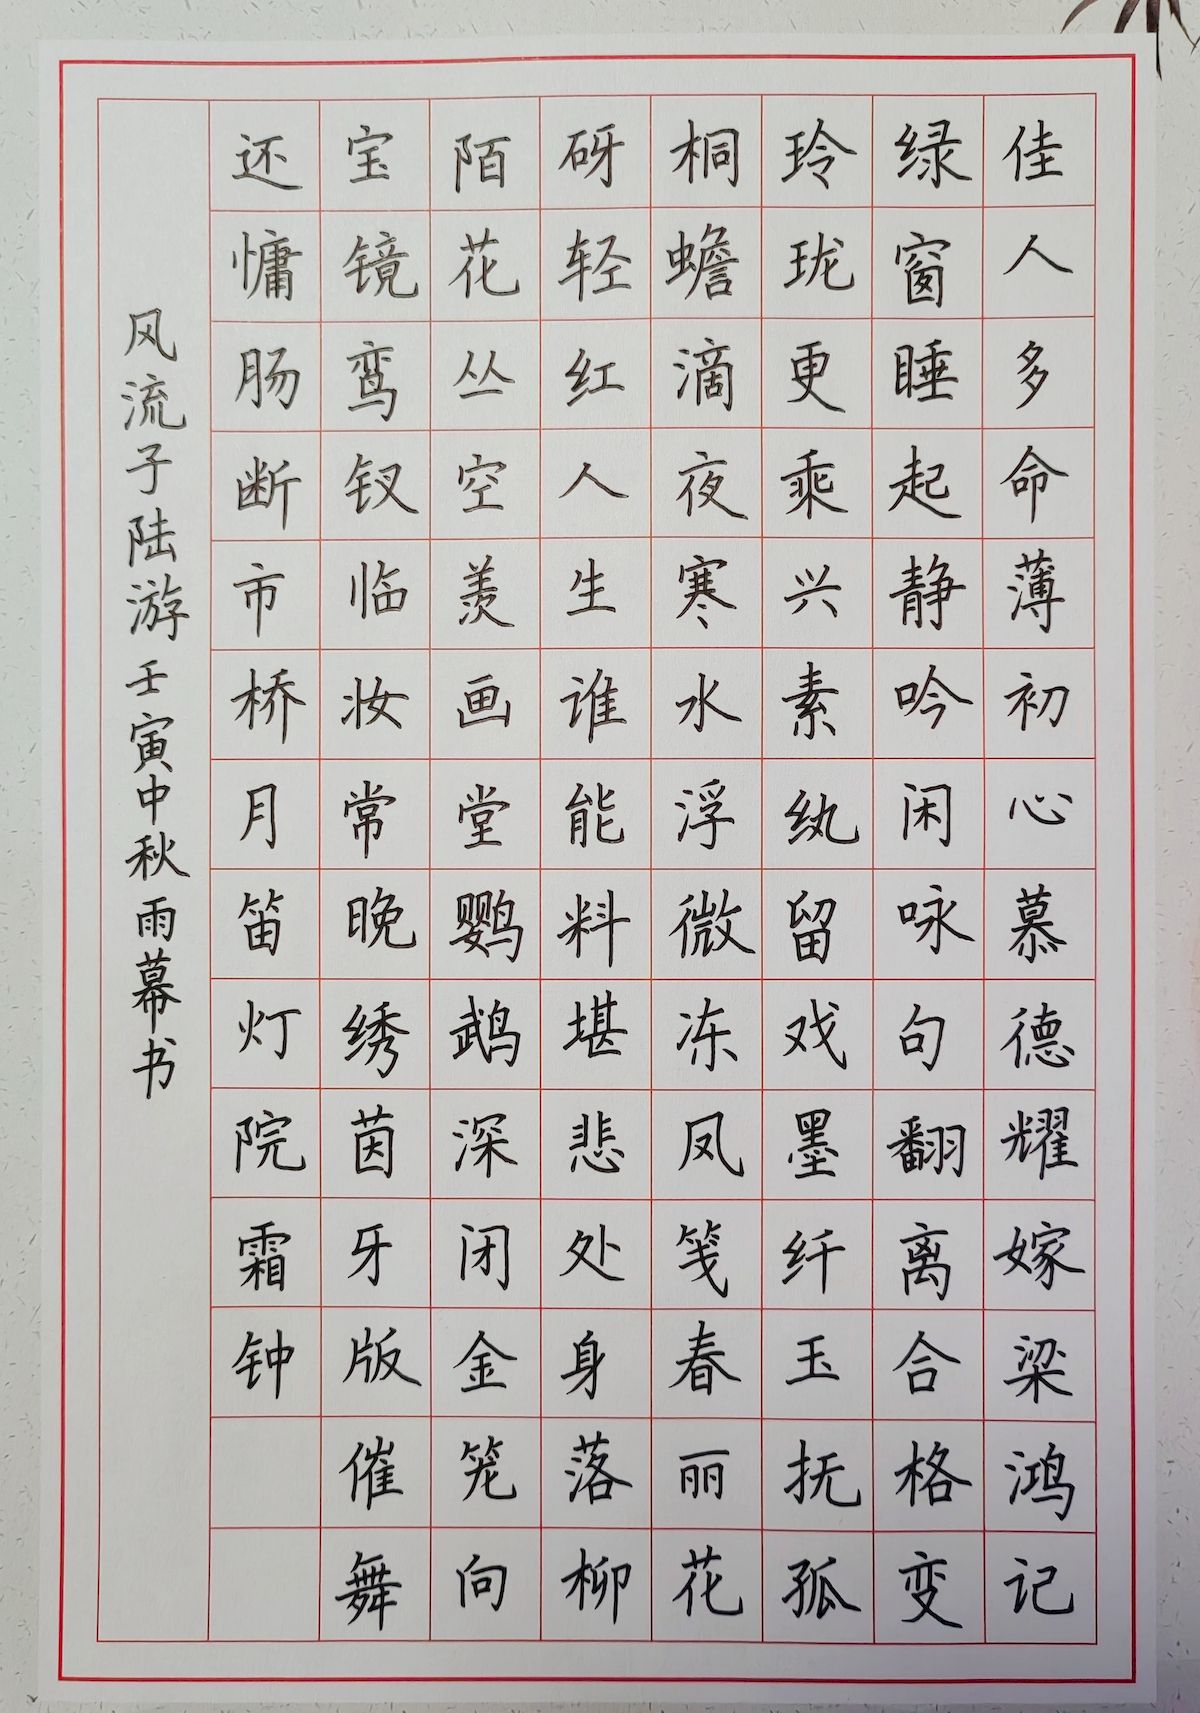 佳人多命薄初心慕德耀嫁梁鸿记
绿窗睡起静吟闲咏句翻离合格变
玲珑更乘兴素纨留戏墨纤玉抚孤
桐蟾滴夜寒水浮微冻凤笺春丽花
砑轻红人生谁能料堪悲处身落柳
陌花丛空羡画堂鹦鹉深闭金笼向
宝镜鸾钗临妆常晚绣茵牙版催舞
还慵肠断市桥月笛灯院霜钟
风流子陆游壬寅中秋雨幕书